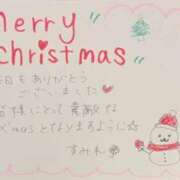 Merry
Christmas
本日もありがとう
ございました♡
皆様にとって素敵な
X'masとなりますように☆
すみれ